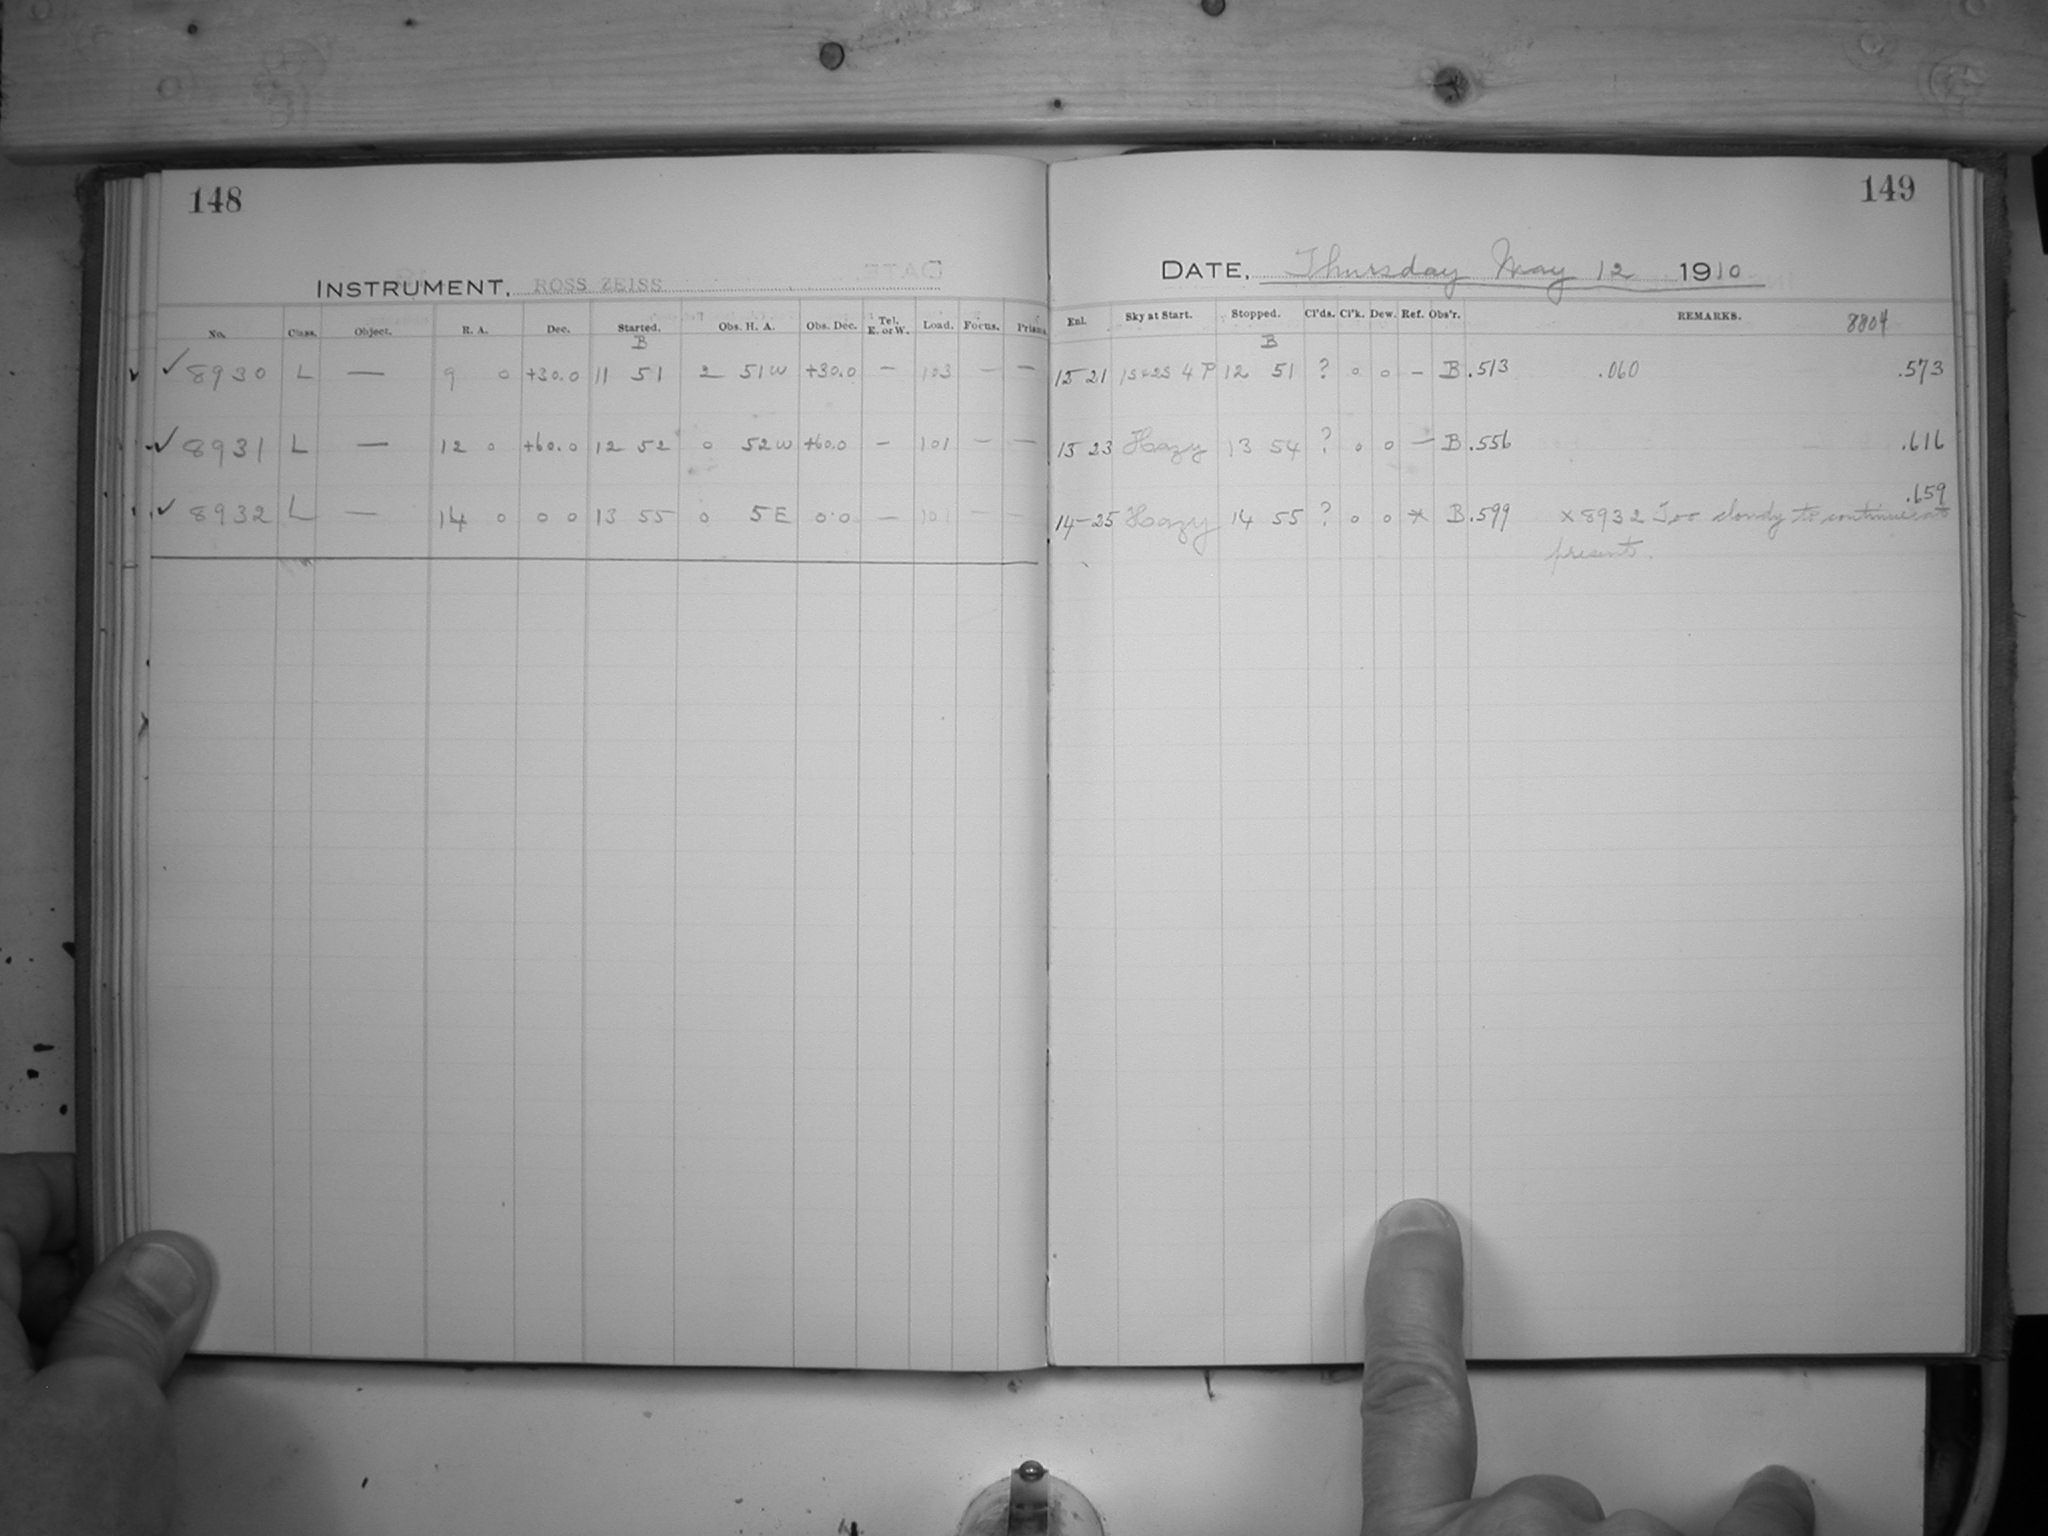 148
INSTRUMENT, ROSS ZEISS
No. Class. Object. R. A. Dec. Started. Obs. H. A. Obs. Dec. Tel. E. or W. Load. Focus. Prisms
B
✓ 8930 L — 9 0 +30.0 11 51 2 51W +30.0 — 103 — —
✓ 8931 L — 12 0 +60.0 12 52 0 52W +60.0 — 101 — —
✓ 8932 L — 14 0 0 0 13 55 0 5E 0.0 — 101 — —
149
DATE, Thursday May 12 1910
Enl. Sky at Start. Stopped. Cl'ds. Cl'k. Dew. Ref. Obs'r. REMARKS. 8804
B
15 21 4 P 12 51 ? 0 0 — B .513 .060 .573
15 23 Hazy 13 54 ? 0 0 — B .556 .616
.659
14-25 Hazy 14 55 ? 0 0 * B .599 × 8932 Too cloudy to continue at
present.